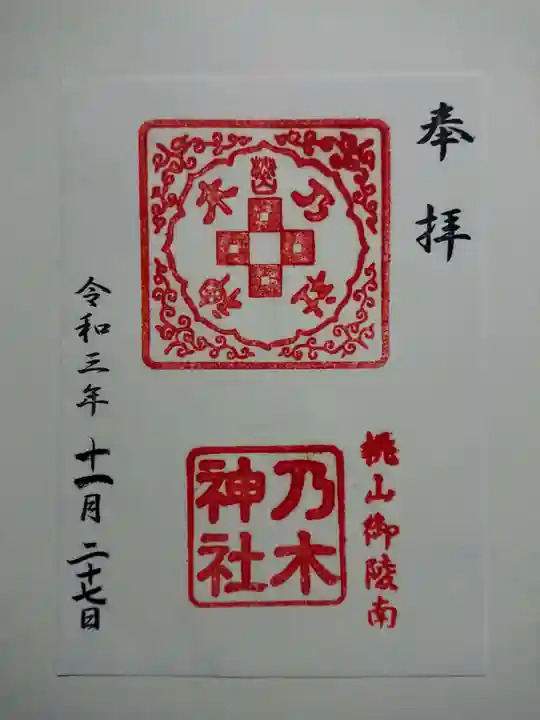 奉拝
桃山御陵南
乃木
神社
令和三年十一月二十七日